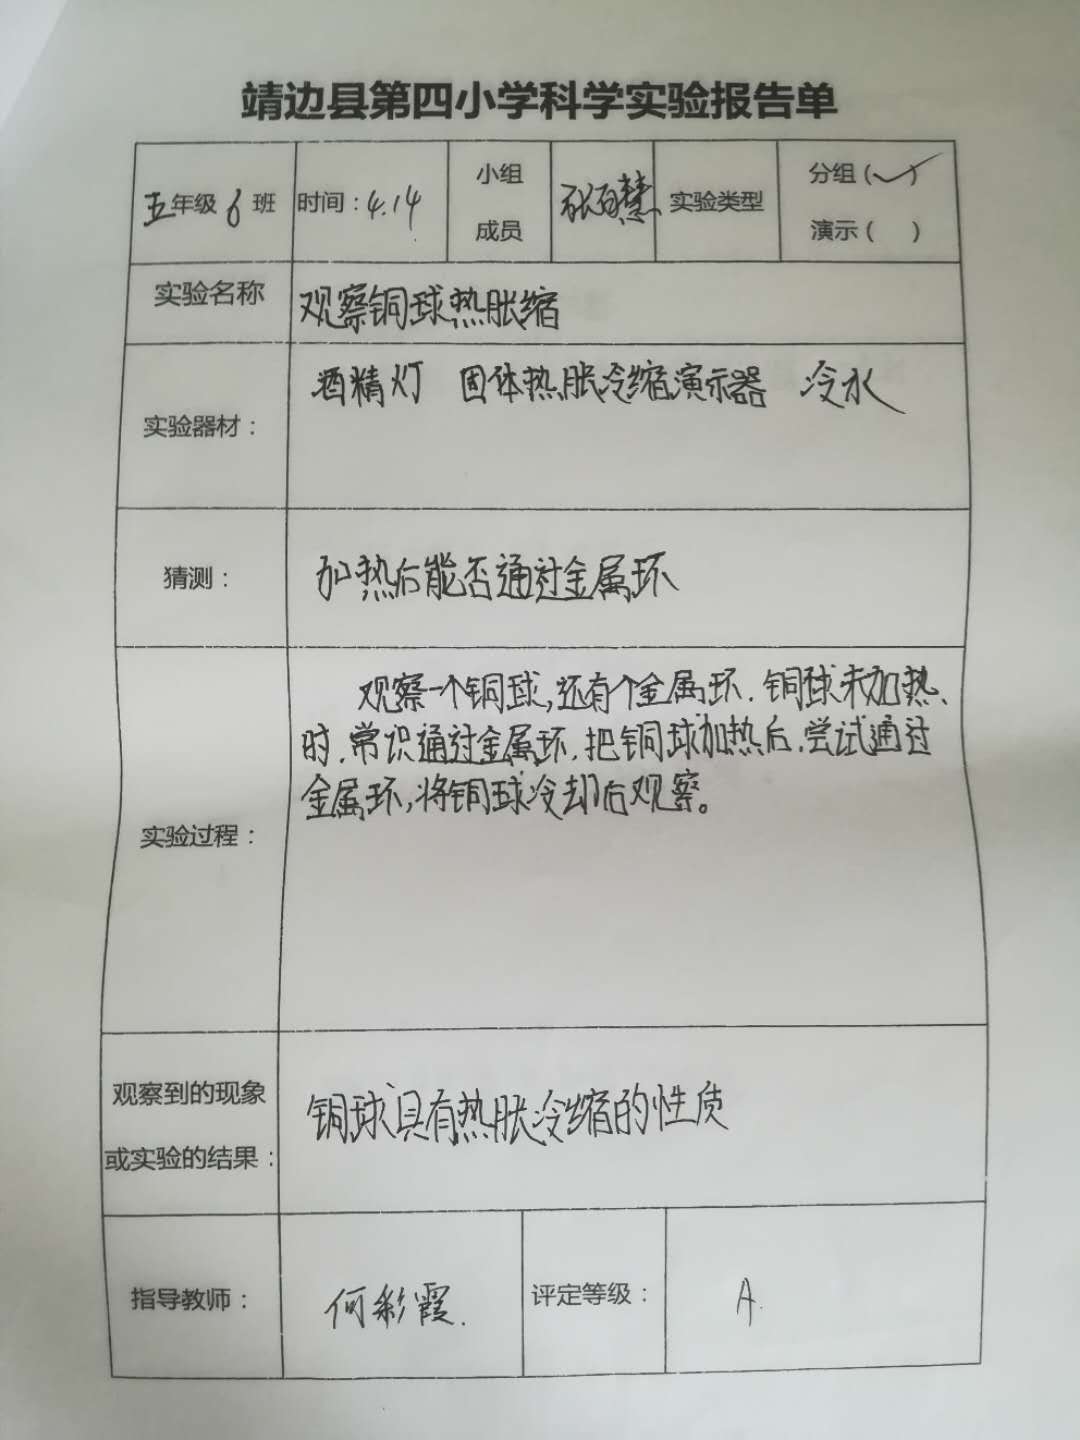 靖边县第四小学科学实验报告单
五年级 6 班 时间：4.14 小组成员 实验类型 分组（✓） 演示（ ）
实验名称 观察铜球热胀缩
实验器材： 酒精灯 固体热胀冷缩演示器 冷水
猜测： 加热后能否通过金属环
实验过程：
观察一个铜球，还有个金属环．铜球未加热、
时．常识通过金属环．把铜球加热后．尝试通过
金属环，将铜球冷却后观察。
观察到的现象
或实验的结果：
铜球具有热胀冷缩的性质
指导教师： 何彩霞． 评定等级： A．